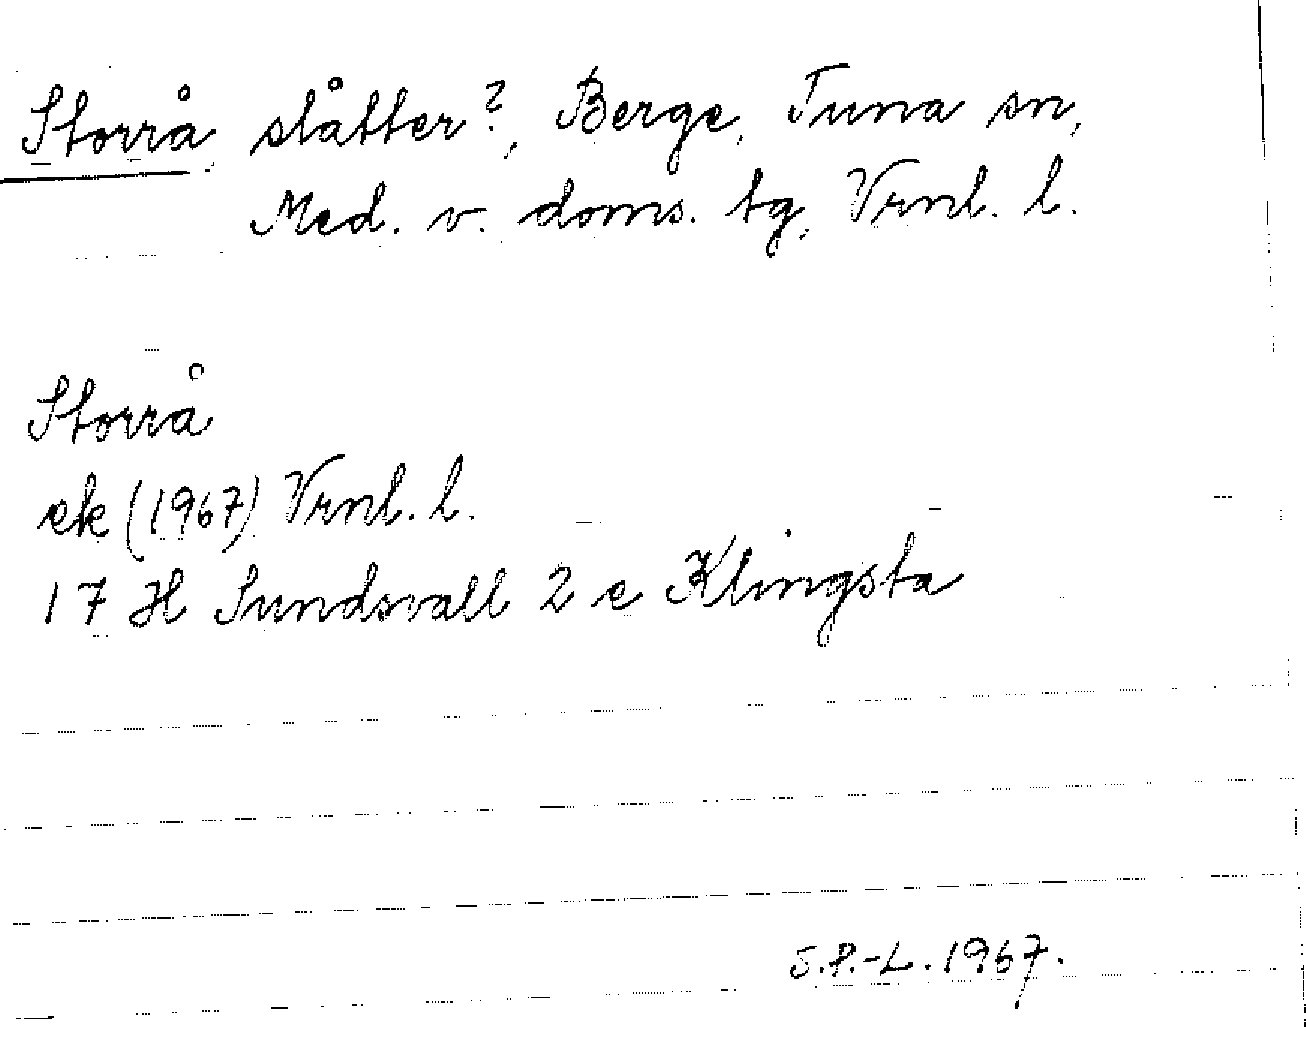 Storrå slåtter?, Berge, Tuna sn,
Med. v. doms. tg, Vrnl. l.
Storrå
ek (1967) Vrnl. l.
17 H Sundsvall 2 e Klingsta
S.P.-L. 1967.